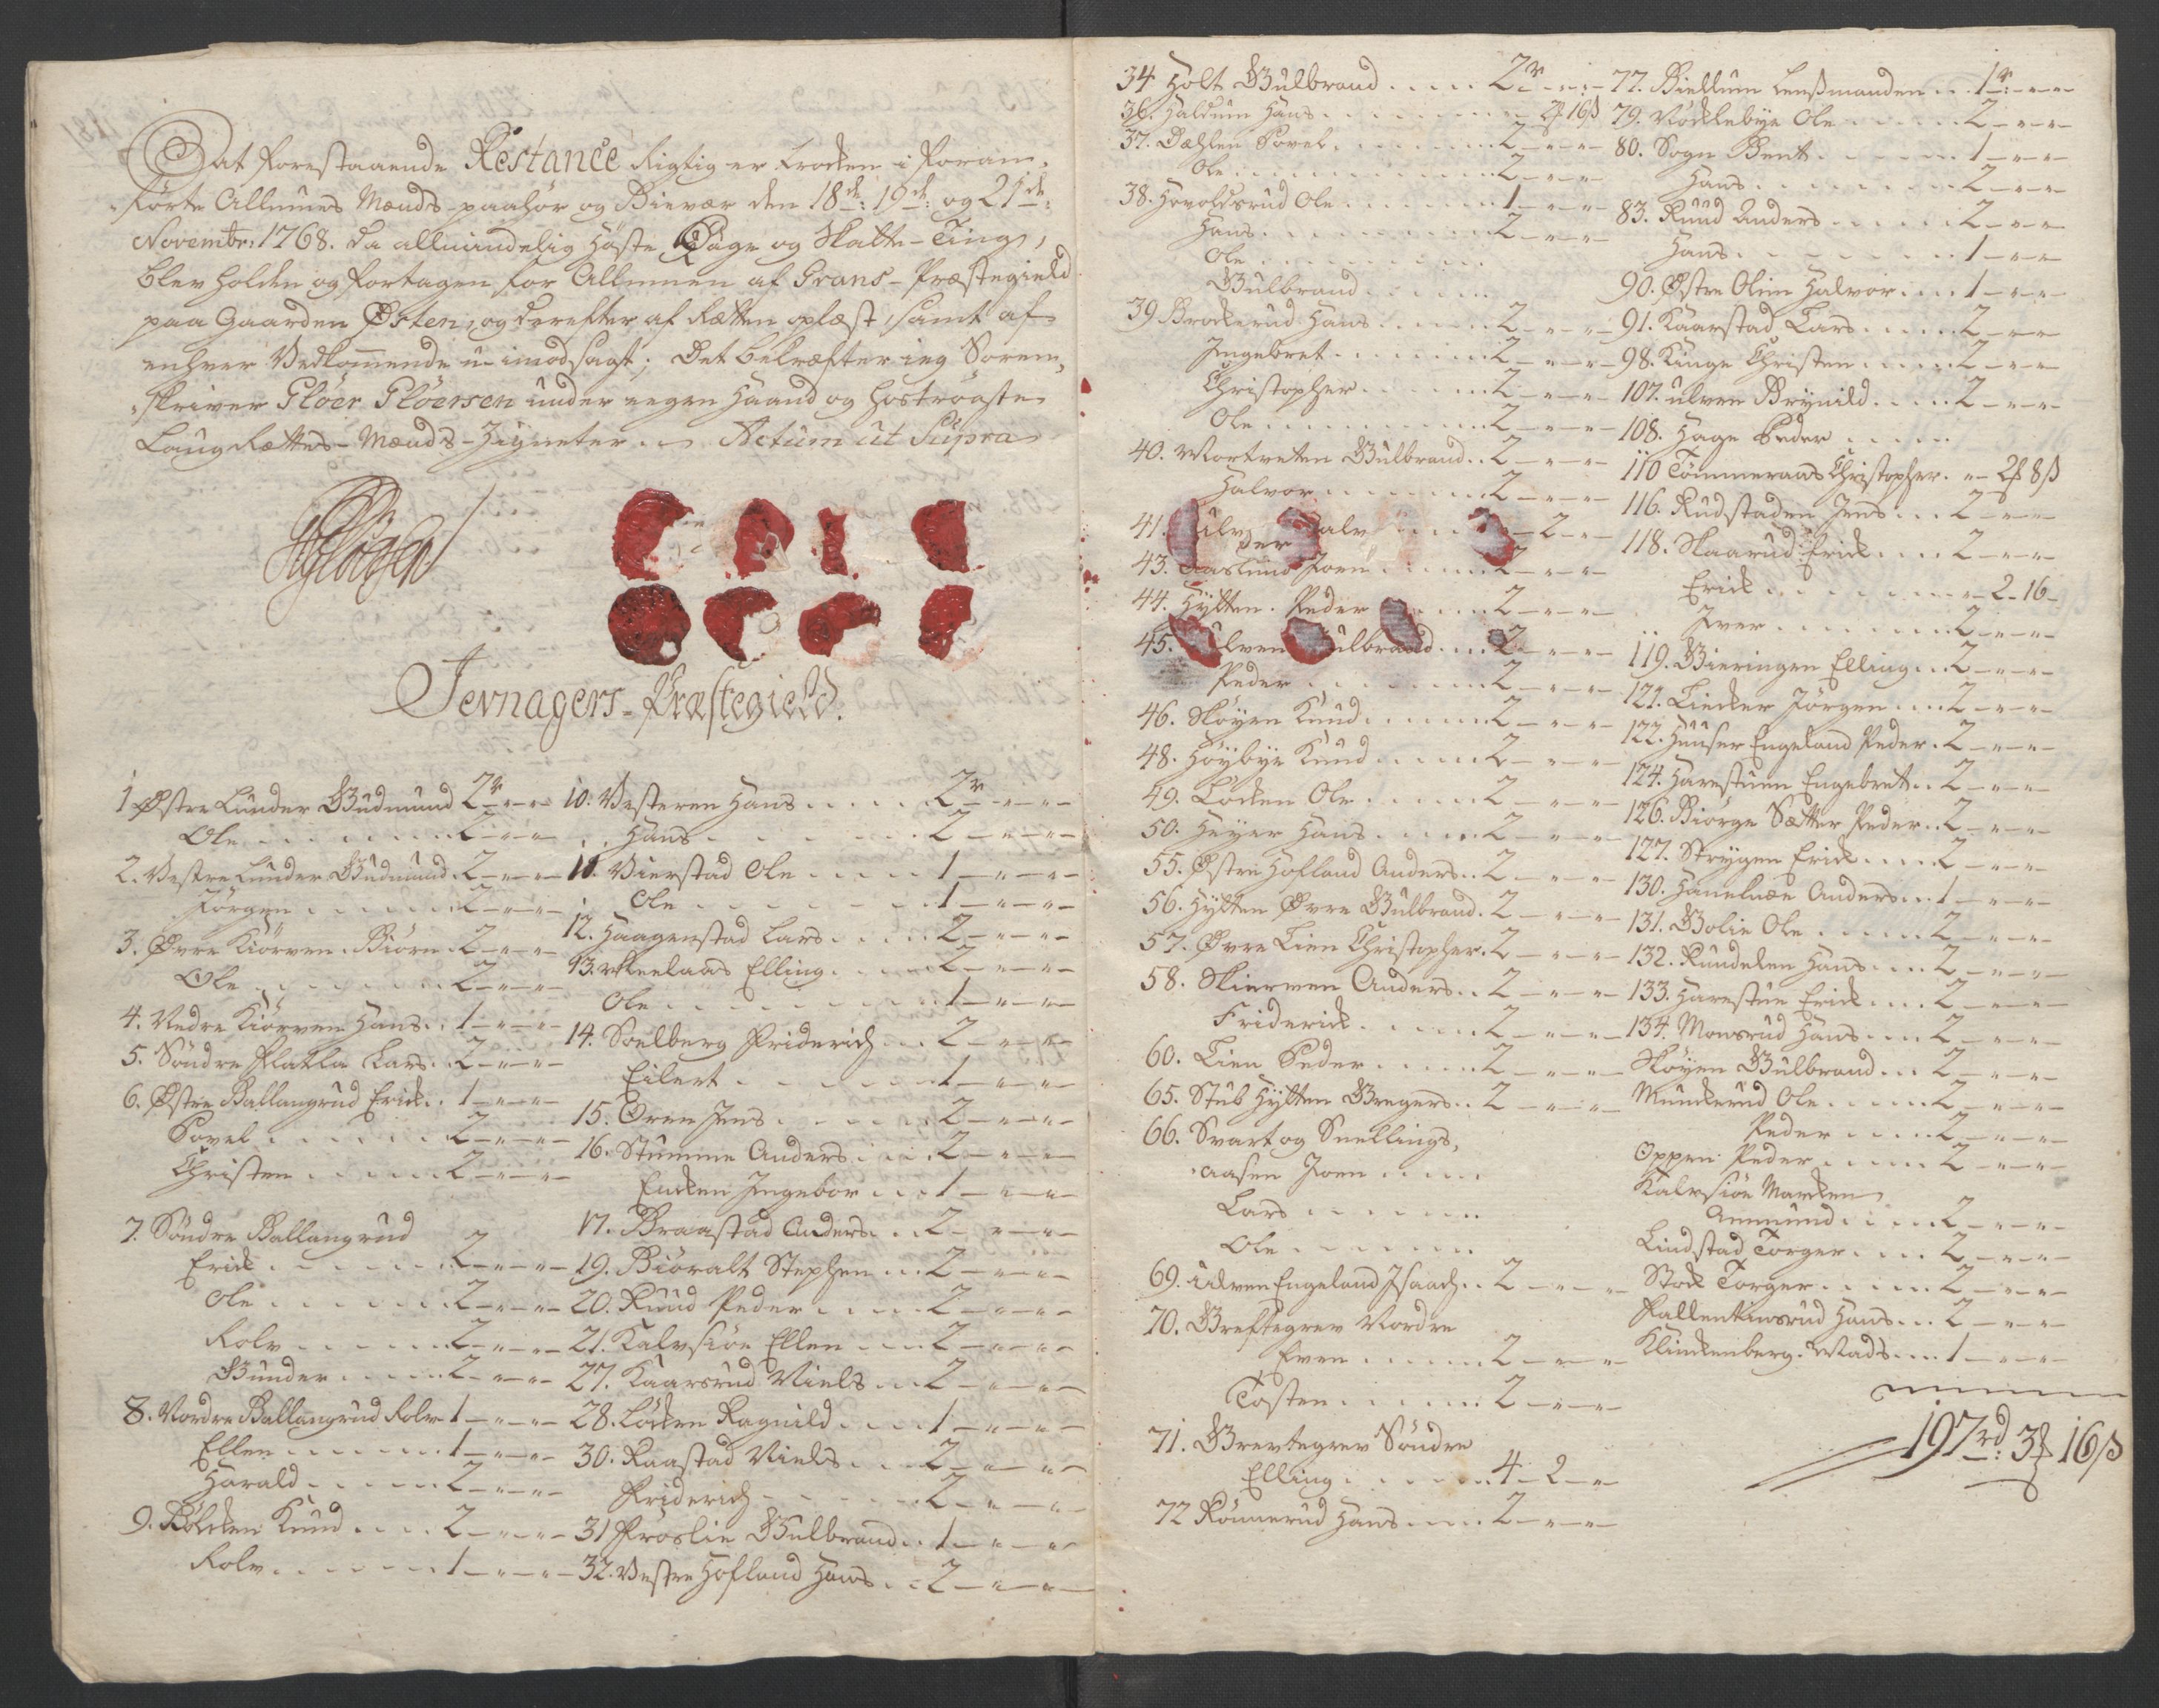 Dat forestaaende Restance Rigtig er trocken i foran-
førte Allmues Mænds paahør og Bievær den 18de: 19de: og 21de:
Novembr: 1768. da allmindelig Høste Sage og Skatte-Ting,
blev holden og fortagen for Allmuen af Grans-Præstegield
paa Gaarden Østen, og derefter af Rætten oplæst, samt af
enhver Vedkommende u-imodsagt; Det bekræfter ieg Soren-
skriver Fløer Fløersen under eegen Haand og hostroøste
LaugRættes-Mænds-Zigneter. Actum ut Supra
Jevnagers-Præstegield.
1 Østre Lunder Gudmund 2r
Ole 2
2. Vestre Lunder Gudmund 2
Jörgen 2
3. Øvre Kiörven Biörn 2
Ole 2
4. Nedre Kiörven Hans 1
5. Söndre Flatla Lars 2
6. Østre Ballangrud Erick 1
Povel 2
Christen 2
7. Söndre Ballangrud
Erick 2
Ole 2
Rolv 2
Gunder 2
8. Nordre Ballangrud Rolv 1
Ellen 1
Harald 2
9. Bölcken Knud 2
Rolv 1
10. Vesteren Hans 2r
Hans 2
11. Vierstad Ole 1
Ole 1
12. Haagenstad Lars 2
13. Meelaas Elling 2
Ole 1
14. Soelberg Friderich 2
Eilert 1
15. Øren Jens 2
16. Stumne Anders 2
Encken Ingebor 1
17. Braastad Anders 2
19. Biöralt Stephen 2
20. Ruud Peder 2
21. Kalvsiöe Ellen 2
27. Kaarsrud Niels 2
28. Löcken Ragnild 1
30. Raastad Niels 2
Friderich 2
31 Fröslie Gulbrand 1
32. Vestre Hofland Hans 2
34 Holt Gulbrand 2r
36. Haldum Hans 2f 16s
37. Dæhlen Povel 2
Ole 2
38. Hovoldsrud Ole 1
Hans 2
Ole
Gulbrand
39 Brockerud Hans 2
Ingebret 2
Christopher 2
Ole 2
40. Mortveten Gulbrand 2
Halvor 2
41. 2
43. Aaslund Joen 2
44. Hytten Peder 2
45. Ulven Gulbrand 2
Peder 2
46. Skøyen Knud 2
48. Höybye Knud 2
49. Locken Ole 2
50. Heyer Hans 2
55. Østre Hofland Anders 2
56. Hytten Øvre Gulbrand 2
57. Øvre Lien Christopher 2
58. Skierven Anders 2
Friderick 2
60. Lien Peder 2
65. Stub Hytten Gregers 2
66. Svart og Snellings-
aasen Joen
Lars
Ole
69. Ulven Engeland Isaach 2
70. Greftegrev Nordre
Even 2
Tosten 2
71. Grevtegrev Söndre
Elling 4 2
72 Rönnerud Hans 2
77. Biellum Lensmanden 1r
79. Nöcklebye Ole 2
80. Sogn Bent 1
Hans 2
83. Ruud Anders 2
Hans 1
90. Østre Olum Halvor 1
91. Kaarstad Lars 2
98. Kinge Christen 2
107. Ulven Brynild 2
108. Hage Peder
110 Tömmeraas Christopher 2f 8s
116. Rudstaden Jens 2
118. Skaarud Erick 2
Erick 2 16
Iver 2
119. Gieringen Elling 2
121. Liecker Jörgen 2
122. Huuser Engeland Peder 2
124. Harestuen Engebret 2
126. Biörge Sætter Peder 2
127. Strygen Erick 2
130. Hanelnæe Anders 1
131. Bolie Ole 2
132. Rundelen Hans 2
133. Harestue Erick 2
134. Monsrud Hans 2
Skøyen Gulbrand 2
Munckerud Ole 2
Peder 2
Oppen Peder 2
Kalvsiöe Marcken
Ammund 2
Lindstad Torger 2
Stock Torger 2
Fallentinsrud Hans 2
Klinckenberg Mads 1
197rd: 3f 16s